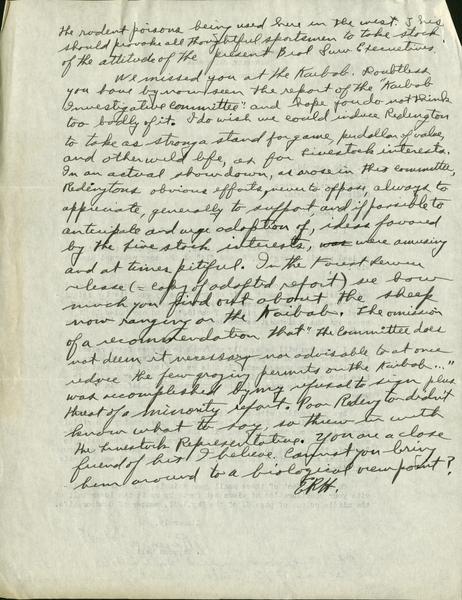 the rodent poisons being used here in the west. This
should provoke all thoughtful sportsmen to take stock
of the attitude of the present Biol Surv Executives.
We missed you at the Kaibab. Doubtless
you have by now seen the report of the "Kaibab
Investigative Committee" and hope you do not think
too badly of it. I do wish we could induce Redington
to take as strong a stand for game, predators of value,
and other wild life, as for livestock interests.
In an actual showdown, as arose in this committee,
Redingtons obvious efforts, never to oppose, always to
appreciate, generally to support, and if possible to
anticipate and urge adoption of, ideas favored
by the live stock interests, were amusing
and at times pitiful. In the Forest Service
release (= copy of adopted report) see how
much you find out about the sheep
now ranging on the Kaibab. The omission
of a recommendation that "The Committee does
not deem it necessary nor advisable to at once
reduce the few grazing permits on the Kaibab..."
was accomplished by my refusal to sign plus
threat of a minority report. Poor Redington didn't
know what to say, so threw in with
the Livestock Representative. You are a close
friend of his I believe. Cannot you bring
him around to a biological viewpoint?
ERH.